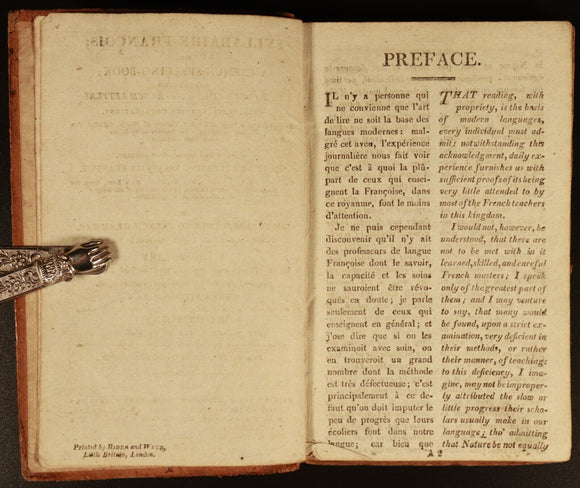 Printed by RIDER and WEED,
Little Britain, London.
PREFACE.
IL n'y a personne qui
ne convienne que l'art
de lire ne soit la base des
langues modernes: mal-
gré cet aveu, l'expérience
journalière nous fait voir
que c'est à quoi la plû-
part de ceux qui ensei-
gnent la Françoise, dans
ce royaume, font le moins
d'attention.
Je ne puis cependant
disconvenir qu'il n'y ait
des professeurs de langue
Françoise dont le savoir,
la capacité et les soins
ne sauroient être révo-
qués en doute; je parle
seulement de ceux qui
enseignent en général; et
j'ose dire que si on les
examinoit avec soin, on
en trouveroit un grand
nombre dont la méthode
est très défectueuse; c'est
principalement à ce dé-
faut qu'on doit imputer le
peu de progrès que leurs
écoliers font dans notre
langue; car bien que
THAT reading, with
propriety, is the basis
of modern languages,
every individual must ad-
mit; notwithstanding this
acknowledgment, daily ex-
perience furnishes us with
sufficient proofs of its being
very little attended to by
most of the French teachers
in this kingdom.
I would not, however, be
understood, that there are
not to be met with in it
learned, skilled, and careful
French masters; I speak
only of the greatest part of
them; and I may venture
to say, that many would
be found, upon a strict ex-
amination, very deficient in
their methods, or rather
their manner, of teaching:
to this deficiency, I ima-
gine, may not be improper-
ly attributed the slow or
little progress their scho-
lars usually make in our
language; tho' admitting
that Nature be not equally
A 2